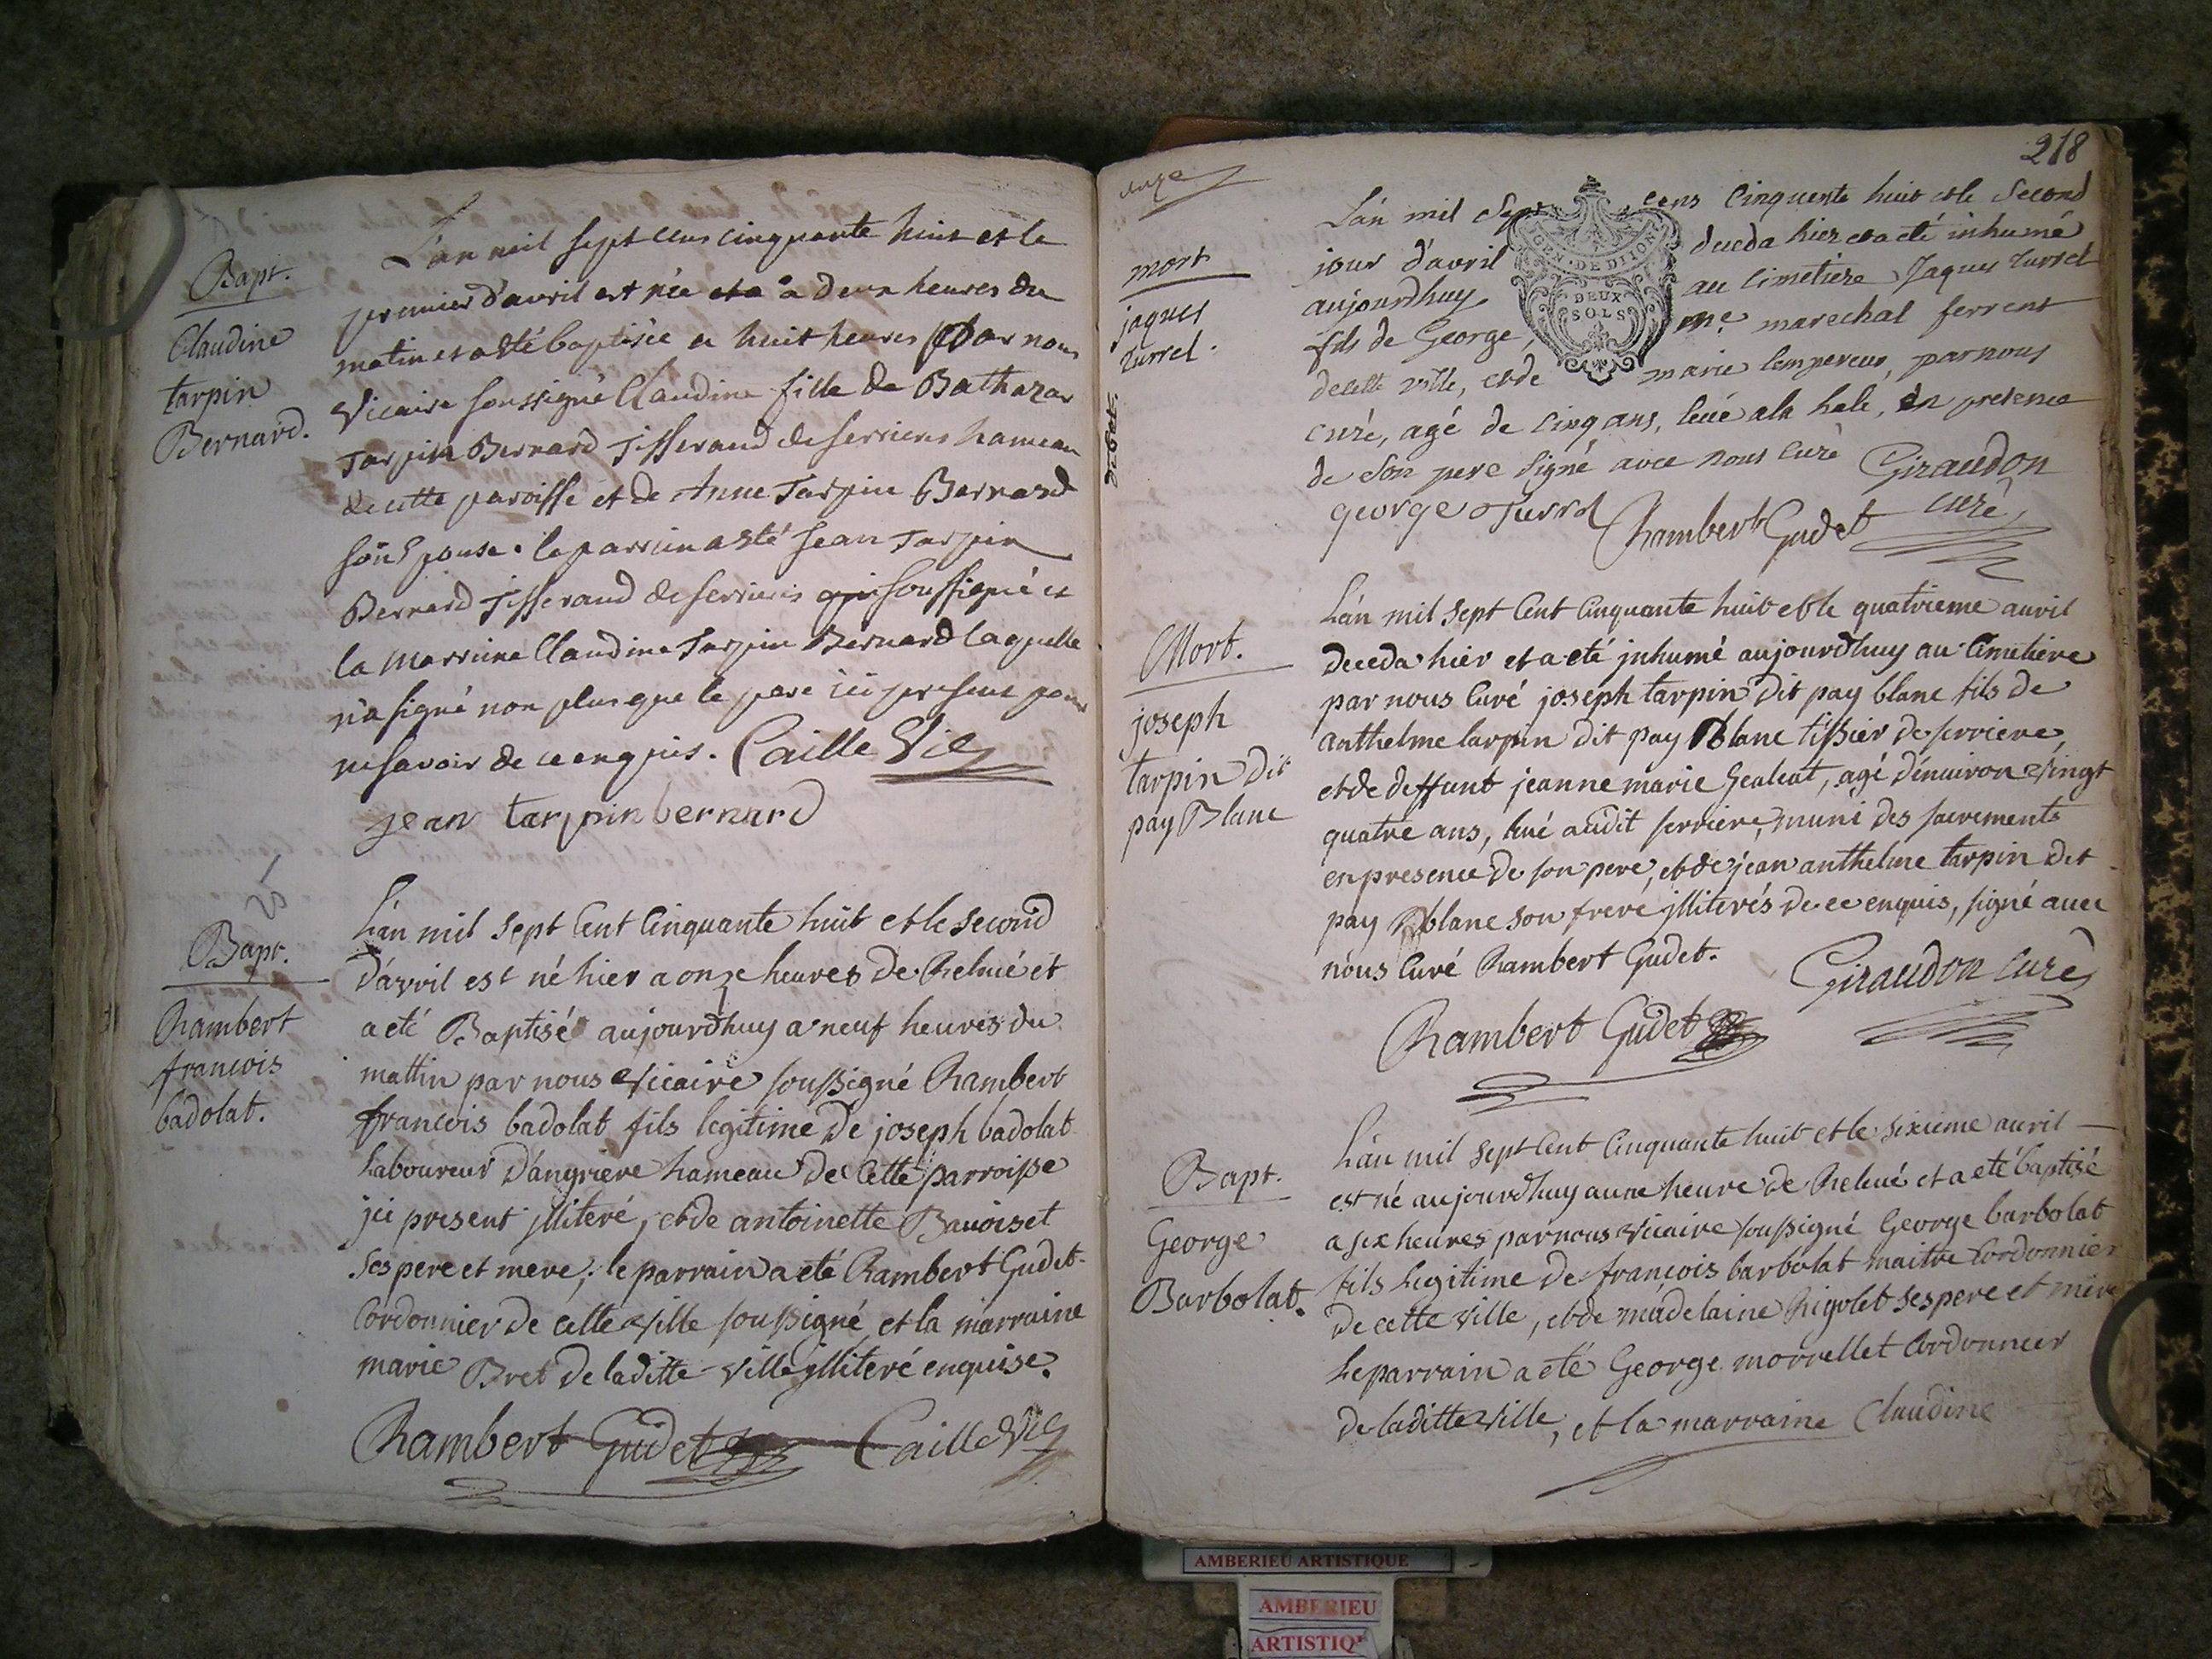 Bapt.
Claudine
tarpin
Bernard.
L'an mil sept cens cinquante huit et le
premier d'avril est née a deux heures du
matin et a été baptisée a huit heures par nous
Vicaire soussigné Claudine fille de Bathazar
Tarpin Bernard Tisserand de serrieres hameau
de cette paroisse et de Anne Tarpin Bernard
son Epouse. le parrein a été Jean Tarpin
Bernard Tisserand de serrieres soussigné et
la Marreine Claudine Tarpin Bernard laquelle
n'a signé non plus que le pere ici present pour
ne savoir de ce enquis. Caille Vic
jean tarpin bernard
Bapt.
Rambert
francois
badolat.
L'an mil sept Cent Cinquante huit et le second
d'avril est né hier a onze heures de Relevé et
a eté Baptisé aujourdhuy a neuf heures du
mattin par nous Vicaire soussigné Rambert
francois badolat fils legitime de joseph badolat
Laboureur d'angriere hameau de Cette parroisse
jci present jlliteré, et de antoinette Bauoiset
ses pere et mere; le parrain a eté Rambert Gudet
Cordonnier de cette Ville soussigné et la marraine
marie Bret de laditte Ville jlliteré enquise.
Rambert Gudet Caille Vic
218
mort
jaques
turrel.
L'an mil sept cens cinquente huit et le second
jour d'avril deceda hier et a eté inhumé
aujourdhuy au cimetiere Jaques turrel
fils de George, me marechal ferrent
de cette ville, et de marie lempereur, par nous
curé, agé de cinq ans, levé a la hale, en presence
de son pere signé avec nous curé Giraudon
george turrel Rambert Gudet curé
DE DIJON
DEUX
SOLS
Mort.
joseph
tarpin dit
pay Blanc
L'an mil sept Cent Cinquante huit et le quatrieme auril
deceda hier et a eté jnhumé aujourdhuy au Cimetiere
par nous Curé joseph tarpin dit pay blanc fils de
anthelme tarpin dit pay Blanc tissier de serriere,
et de deffunt jeanne marie , agé d'enuiron Vingt
quatre ans, leué audit serriere, muni des sacrements
en presence de son pere, et de jean anthelme tarpin dit
pay blanc son frere jlliterés de ce enquis, signé auec
nous Curé Rambert Gudet.
Giraudon curé
Rambert Gudet
Bapt.
George
Barbolat.
L'an mil sept Cent Cinquante huit et le sixieme auril
est né aujourdhuy a une heure de Releué et a eté baptisé
a six heures par nous Vicaire soussigné George barbolat
fils Legitime de françois barbolat maitre Cordonnier
de cette Ville, et de madelaine Rigolet ses pere et mere
Le parrain a eté George morrellet Cordonnier
de laditte Ville, et la marraine Claudine
AMBERIEU ARTISTIQUE
AMBERIEU
ARTISTIQ